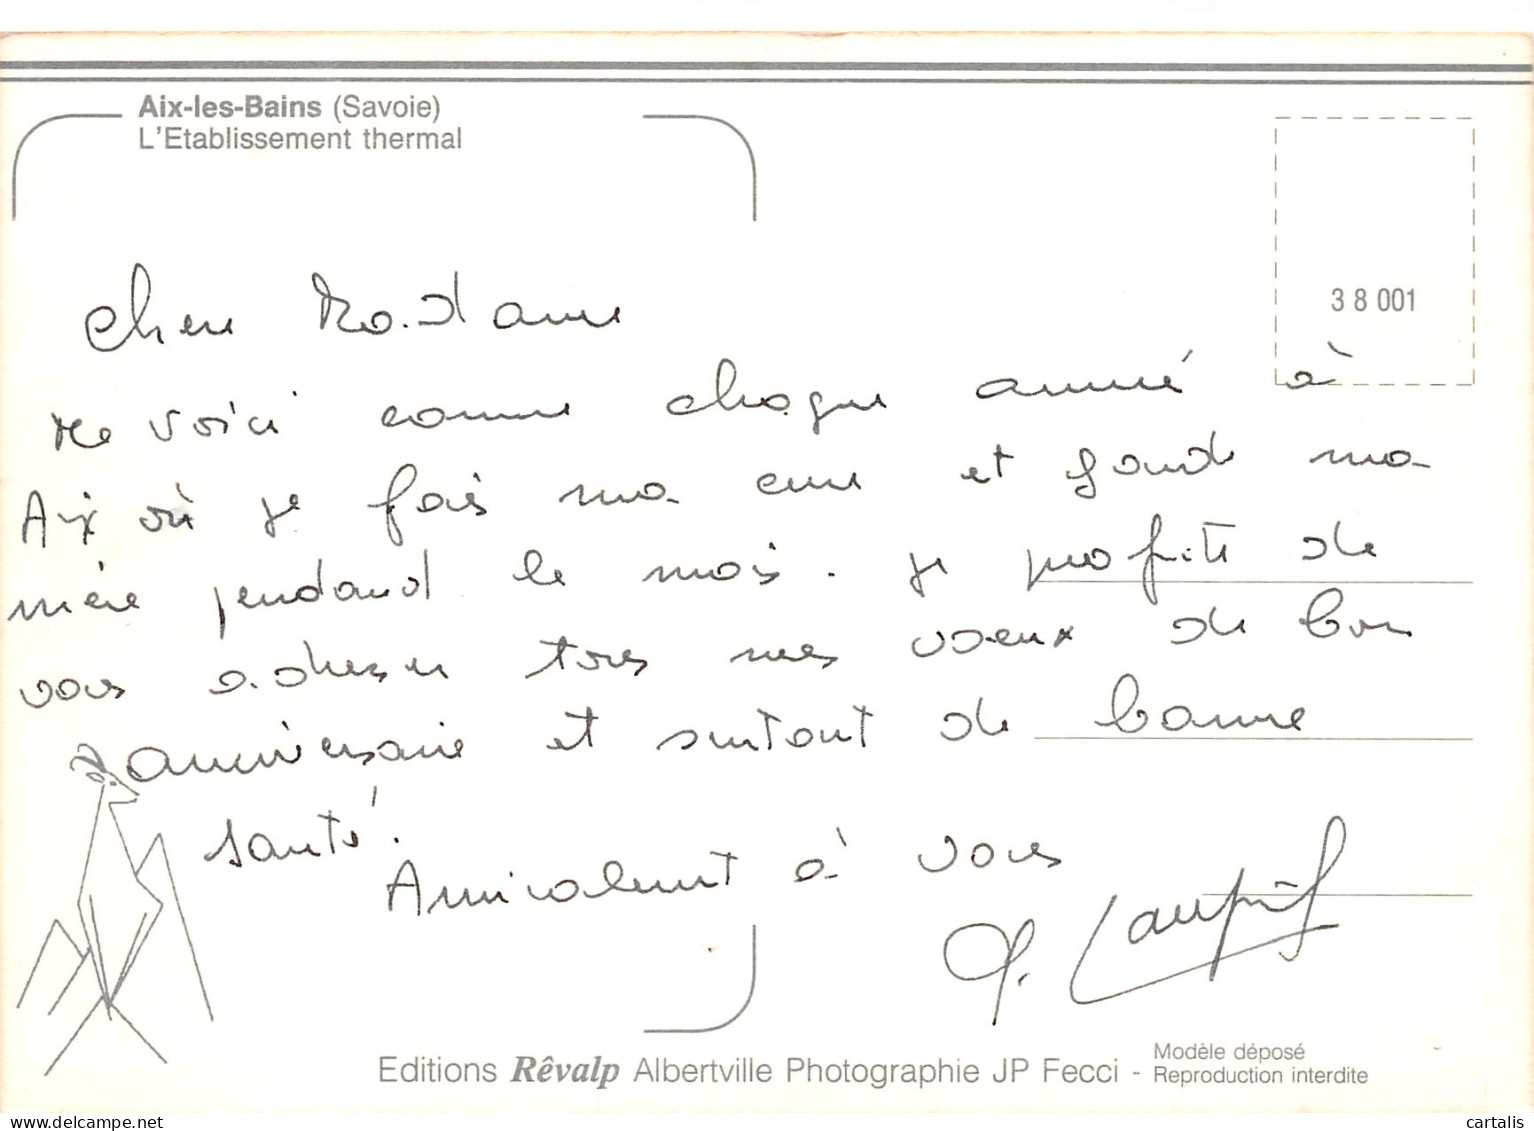 Aix-les-Bains (Savoie)
L'Etablissement thermal
38 001
Chere Madame
Me voici comme chaque année à
Aix où je fais ma cure et garde ma
mère pendand le mois. je profite de
vous adresser tous mes voeux de bon
anniversaire et surtout de bonne
santé.
Amicalement à vous
Editions Rêvalp Albertville Photographie JP Fecci - Modèle déposé
Reproduction interdite
delcampe.net
cartalis